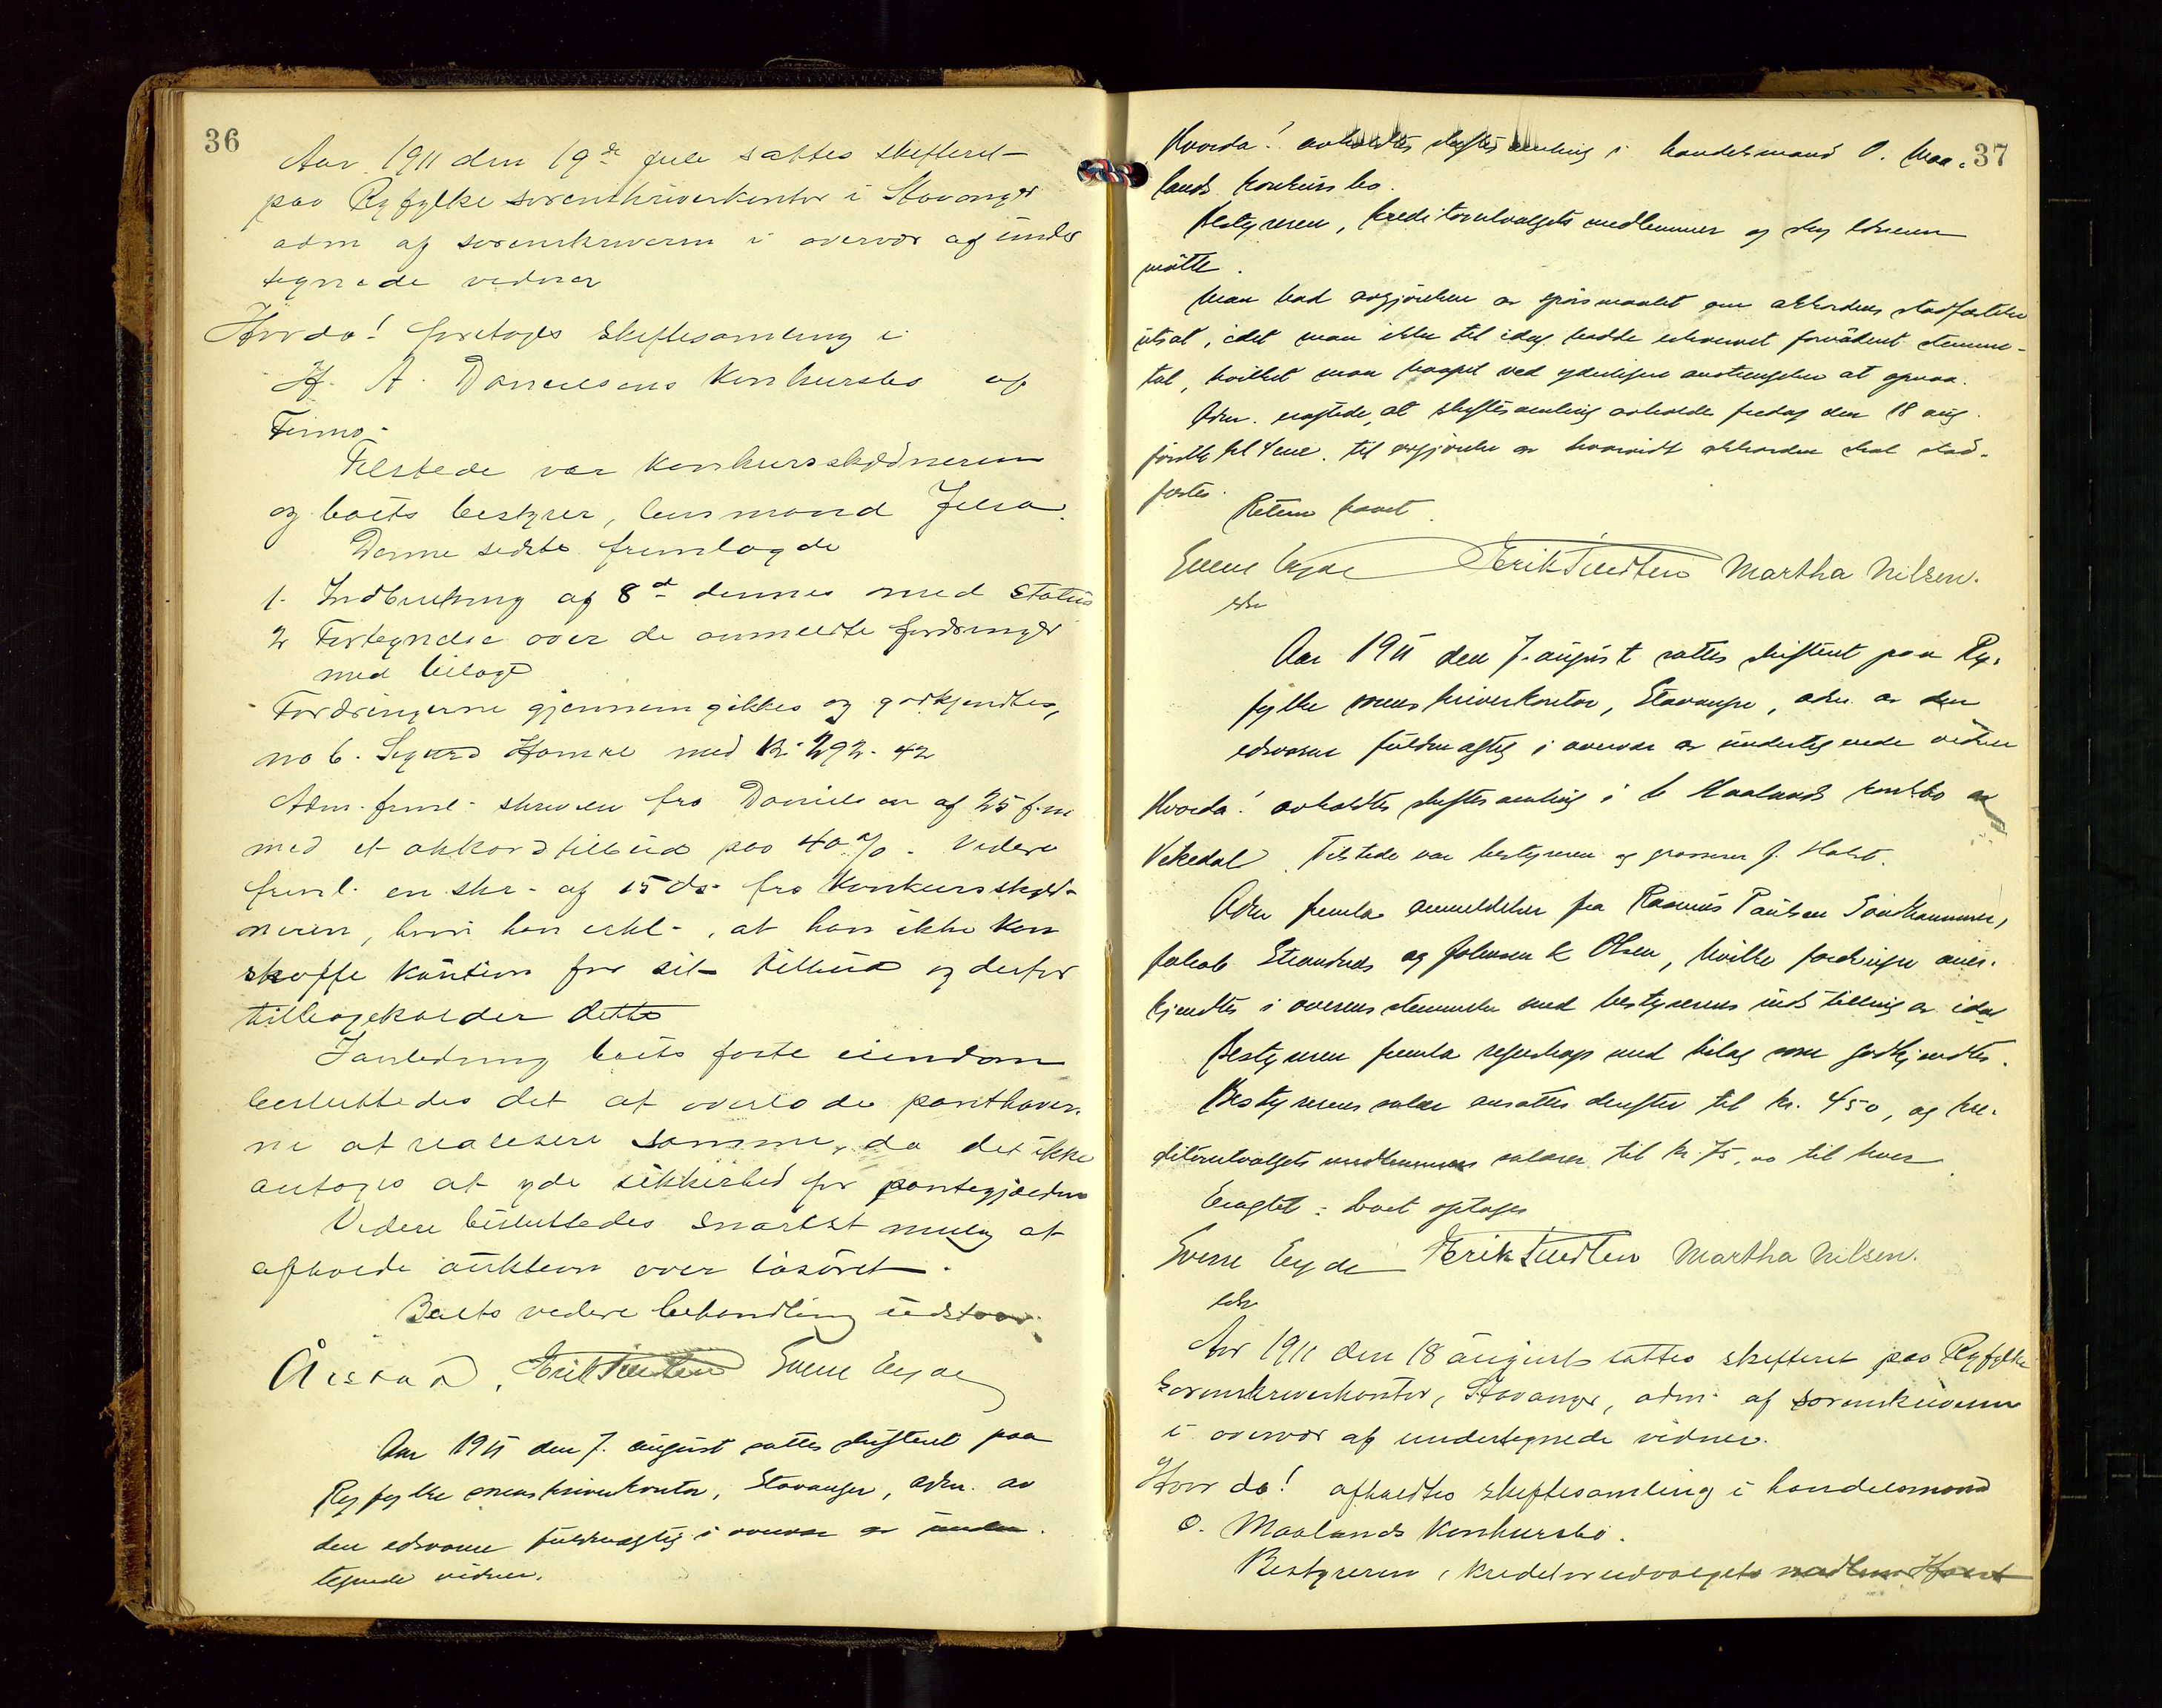 36
Aar 1911 den 19de juli sattes skifteret
paa Ryfylke sorenskriverkontor i Stavanger
adm af sorenskriveren i overvær af under
tegnede vidner
Hvorda! foretages skiftesamling i
H. A. Danielsens konkursbo af
Tilstede var konkursskyldneren
og boets bestyrer, lensmand Jelsa.
Denne sidste fremlagde
1. Indberetning af 8de dennes med status
2 Fortegnelse over de anmeldte fordringer
med bilage
Fordringerne gjennemgikkes og godkjendtes,
no 6. Sigurd Hamre med kr 292.42
Adm. freml. skrivelse fra Danielsen af 25 f.m
med et akkordtilbud paa 40 %. Videre
freml. en skr. af 15 ds. fra konkursskyld-
neren, hvori han erkl., at han ikke kan
skaffe kaution for sit tilbud og derfor
tilbagekalder dette
I anledning boets faste eiendom
besluttedes det at overlade panthaver-
ne at realisere samme, da det ikke
antages at yde sikkerhed for pantegjælden
Videre besluttedes snarest mulig at
afholde auktion over løsøret.
Boets videre behandling udstaar.
Aarstad. Erik Tuedten Svein Eyde
Aar 1911 den 7. august sattes skifteret paa
Ryfylke sorenskriverkontor, Stavanger, adm. av
den edsvorne fuldmægtig i overvær av under-
tegnede vidner.
37
Hvorda! avholdtes skiftesamling i handelsmand O. Maa-
lands konkursbo.
Bestyreren, kreditorutvalgets medlemmer og skyldneren
møtte.
Man bad avgjørelsen av spørsmaalet om akkordens stadfæstelse
utsat, idet man ikke til idag hadde erhvervet fornødent stemme-
tal, hvilket man haapet ved yderligere anstrengelse at opnaa.
Adm. eragtede, at skiftesamling avholdes fredag den 18 aug.
førstk kl 4 em. til avgjørelse av hvorvidt akkorden skal stad-
fæstes.
Retten hævet.
Svein Eyde Erik Tuedten Martha Nilsen.
Aar 1911 den 7. august sattes skifteret paa Ry-
fylke sorenskriverkontor, Stavanger, adm. av den
edsvorne fuldmægtig i overvær av undertegnede vidner
Hvorda! avholdtes skiftesamling i Maalands konkbo av
Vikedal. Tilstede var bestyreren og grosserer J. Holst.
Adm fremla anmeldelser fra Rasmus Paulsen Sandhammer,
Jakob Strandnes og Johnsen & Olsen, hvilke fordringer aner-
kjendtes i overensstemmelse med bestyrerens indstilling av idag
Bestyreren fremla regnskap med bilag som godkjendtes.
Bestyrerens salær ansattes derefter til kr. 450, og kre-
ditorutvalgets medlemmers salærer til kr. 75,00 til hver
Eragtet: boet optages
Svein Eyde Erik Tuedten Martha Nilsen.
Aar 1911 den 18 august sattes skifteret paa Ryfylke
sorenskriverkontor, Stavanger, adm. af sorenskriveren
i overvær af undertegnede vidner.
Hvorda! afholdtes skiftesamling i handelsmand
O. Maalands konkursbo.
Bestyreren, kreditorudvalgets medlem Holst